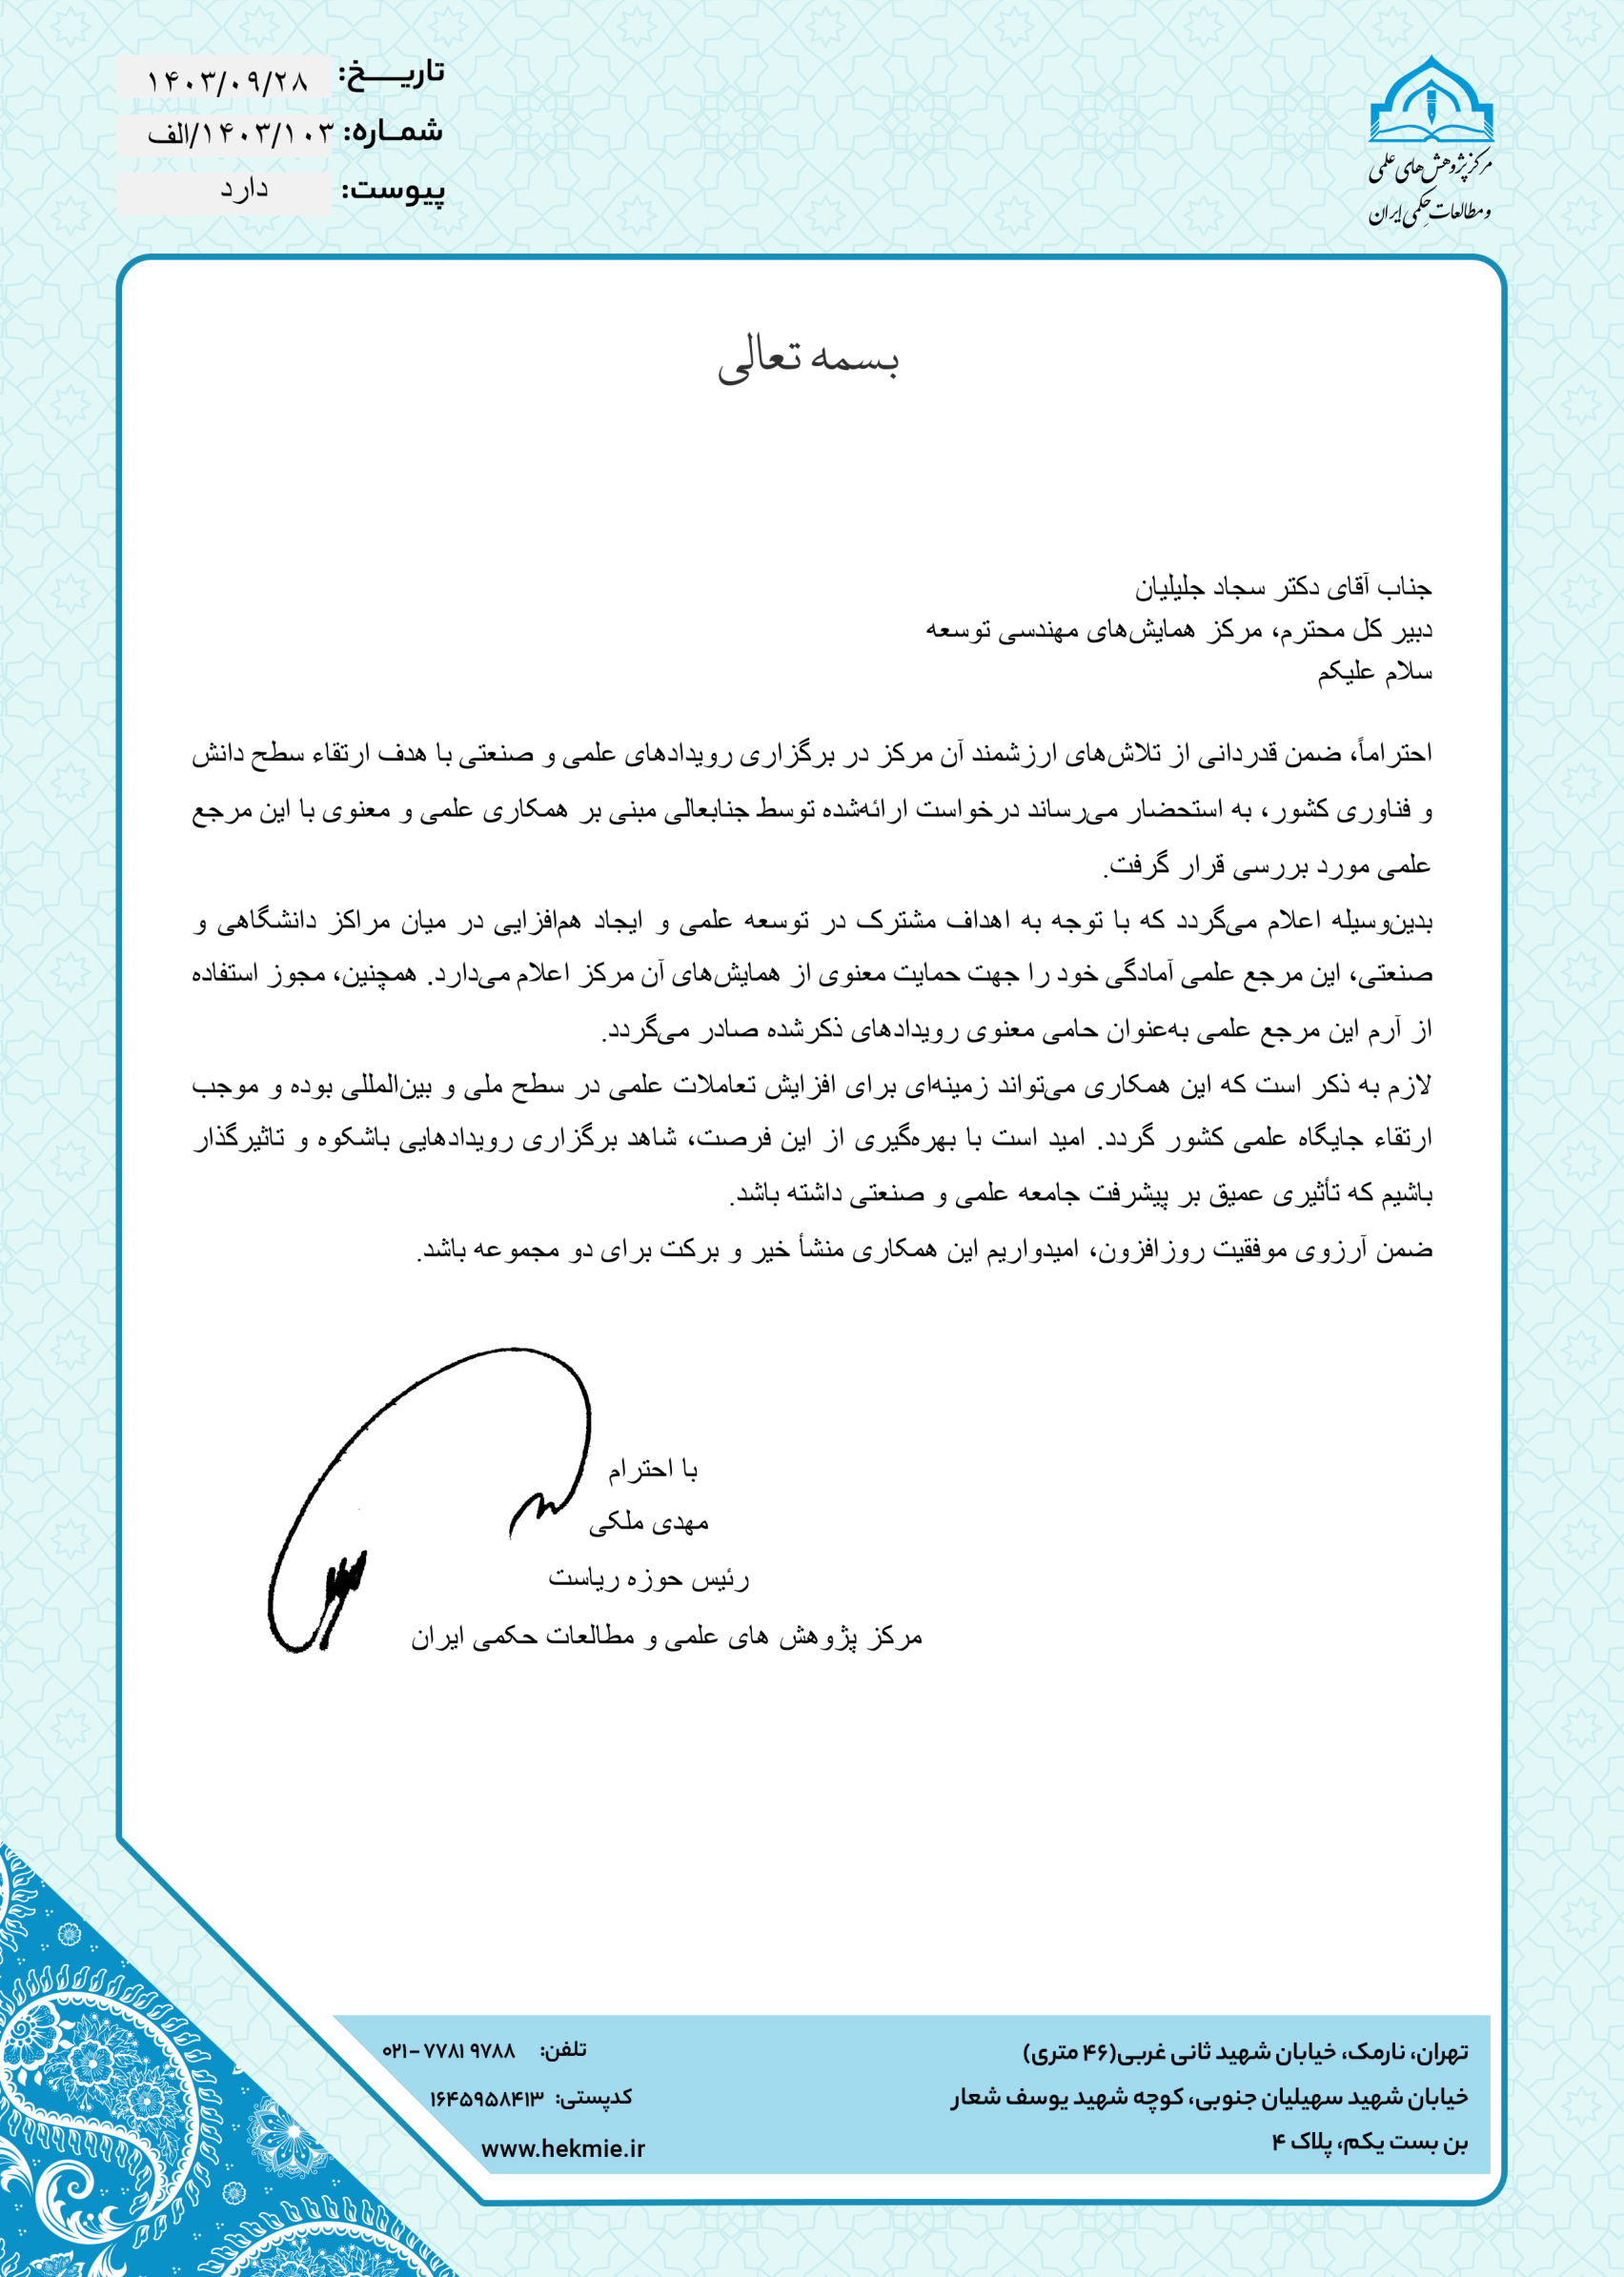 تاریـــــخ: ۱۴۰۳/۰۹/۲۸
شمــاره: ۱۴۰۳/۱۰۳/الف
پیوست: دارد
مرکز پژوهش‌های علمی
و مطالعات حِکمی ایران
بسمه تعالی
جناب آقای دکتر سجاد جلیلیان
دبیر کل محترم، مرکز همایش‌های مهندسی توسعه
سلام علیکم
احتراماً، ضمن قدردانی از تلاش‌های ارزشمند آن مرکز در برگزاری رویدادهای علمی و صنعتی با هدف ارتقاء سطح دانش
و فناوری کشور، به استحضار می‌رساند درخواست ارائه‌شده توسط جنابعالی مبنی بر همکاری علمی و معنوی با این مرجع
علمی مورد بررسی قرار گرفت.
بدین‌وسیله اعلام می‌گردد که با توجه به اهداف مشترک در توسعه علمی و ایجاد هم‌افزایی در میان مراکز دانشگاهی و
صنعتی، این مرجع علمی آمادگی خود را جهت حمایت معنوی از همایش‌های آن مرکز اعلام می‌دارد. همچنین، مجوز استفاده
از آرم این مرجع علمی به‌عنوان حامی معنوی رویدادهای ذکرشده صادر می‌گردد.
لازم به ذکر است که این همکاری می‌تواند زمینه‌ای برای افزایش تعاملات علمی در سطح ملی و بین‌المللی بوده و موجب
ارتقاء جایگاه علمی کشور گردد. امید است با بهره‌گیری از این فرصت، شاهد برگزاری رویدادهایی باشکوه و تاثیرگذار
باشیم که تأثیری عمیق بر پیشرفت جامعه علمی و صنعتی داشته باشد.
ضمن آرزوی موفقیت روزافزون، امیدواریم این همکاری منشأ خیر و برکت برای دو مجموعه باشد.
با احترام
مهدی ملکی
رئیس حوزه ریاست
مرکز پژوهش های علمی و مطالعات حکمی ایران
تهران، نارمک، خیابان شهید ثانی غربی(۴۶ متری)
خیابان شهید سهیلیان جنوبی، کوچه شهید یوسف شعار
بن بست یکم، پلاک ۴
تلفن: ۰۲۱– ۷۷۸۱ ۹۷۸۸
کدپستی: ۱۶۴۵۹۵۸۴۱۳
www.hekmie.ir